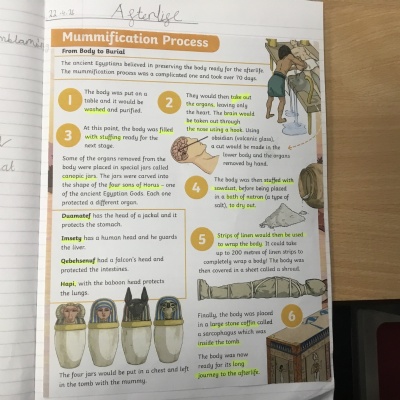 Afterlife
Mummification Process
From Body to Burial
The ancient Egyptians believed in preserving the body ready for the afterlife.
The mummification process was a complicated one and took over 70 days.
1
The body was put on a
table and it would be
washed and purified.
2
They would then take out
the organs, leaving only
the heart. The brain would
be taken out through
the nose using a hook. Using
obsidian (volcanic glass),
a cut would be made in the
lower body and the organs
removed by hand.
3
At this point, the body was filled
with stuffing ready for the
next stage.
Some of the organs removed from the
body were placed in special jars called
canopic jars. The jars were carved into
the shape of the four sons of Horus – one
of the ancient Egyptian Gods. Each one
protected a different organ.
Duamatef has the head of a jackal and it
protects the stomach.
Imsety has a human head and he guards
the liver.
Qebehsenuf had a falcon's head and
protected the intestines.
Hapi, with the baboon head protects
the lungs.
The four jars would be put in a chest and left
in the tomb with the mummy.
4
The body was then stuffed with
sawdust, before being placed
in a bath of natron (a type of
salt), to dry out.
5
Strips of linen would then be used
to wrap the body. It could take
up to 200 metres of linen strips to
completely wrap a body! The body was
then covered in a sheet called a shroud.
6
Finally, the body was placed
in a large stone coffin called
a sarcophagus which was
inside the tomb.
The body was now
ready for its long
journey to the afterlife.